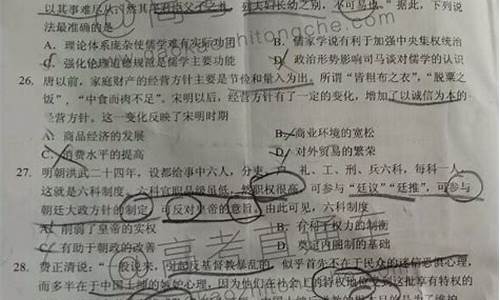 以其事难尽从
长幼之别，不可易也。”据此，下列说
法最准确的是
A. 理论体系庞杂使儒学难有实际功团
B. 儒家学说有利于加强中央集权统治
C. 强化伦理道德规范是儒学主要功能
D. 政治形势影响司马谈对儒学的认识
26. 唐以前，家庭财产的经营方针主要是节俭和量入为出。所谓“皆粗布之衣”，“脱粟之
饭”，“中食而肉不足”。宋明以后，经营方针有了一定的变化，增加了以诚信为本的
经营方针。这一变化反映了宋明时期
A. 商品经济的发展
B. 商业环境的宽松
C. 消费水平的提高
D. 对外贸易的繁荣
27. 明朝洪武二十四年，设都给事中六人，分吏、户、礼、工、刑、兵六科，每科一人，
这就是六科制度。六科官职品级虽低，然职权很高，可参与“廷议”“廷推”，可参与
朝廷大政方针的制定，可反对皇帝的意旨。由此可见，六科制度
A. 削弱了皇帝的实权
B. 有利于权力的制衡
C. 有助于朝政的改善
D. 奠定内阁制的基础
28. 费正清说：“一般说来，对起反基督教暴乱的，似乎首先不在于民众的迷信恐惧心理，
而多半在于中国士绅的嫉妒心理，因为他们在社会上的特权地位受到这批享有特权的